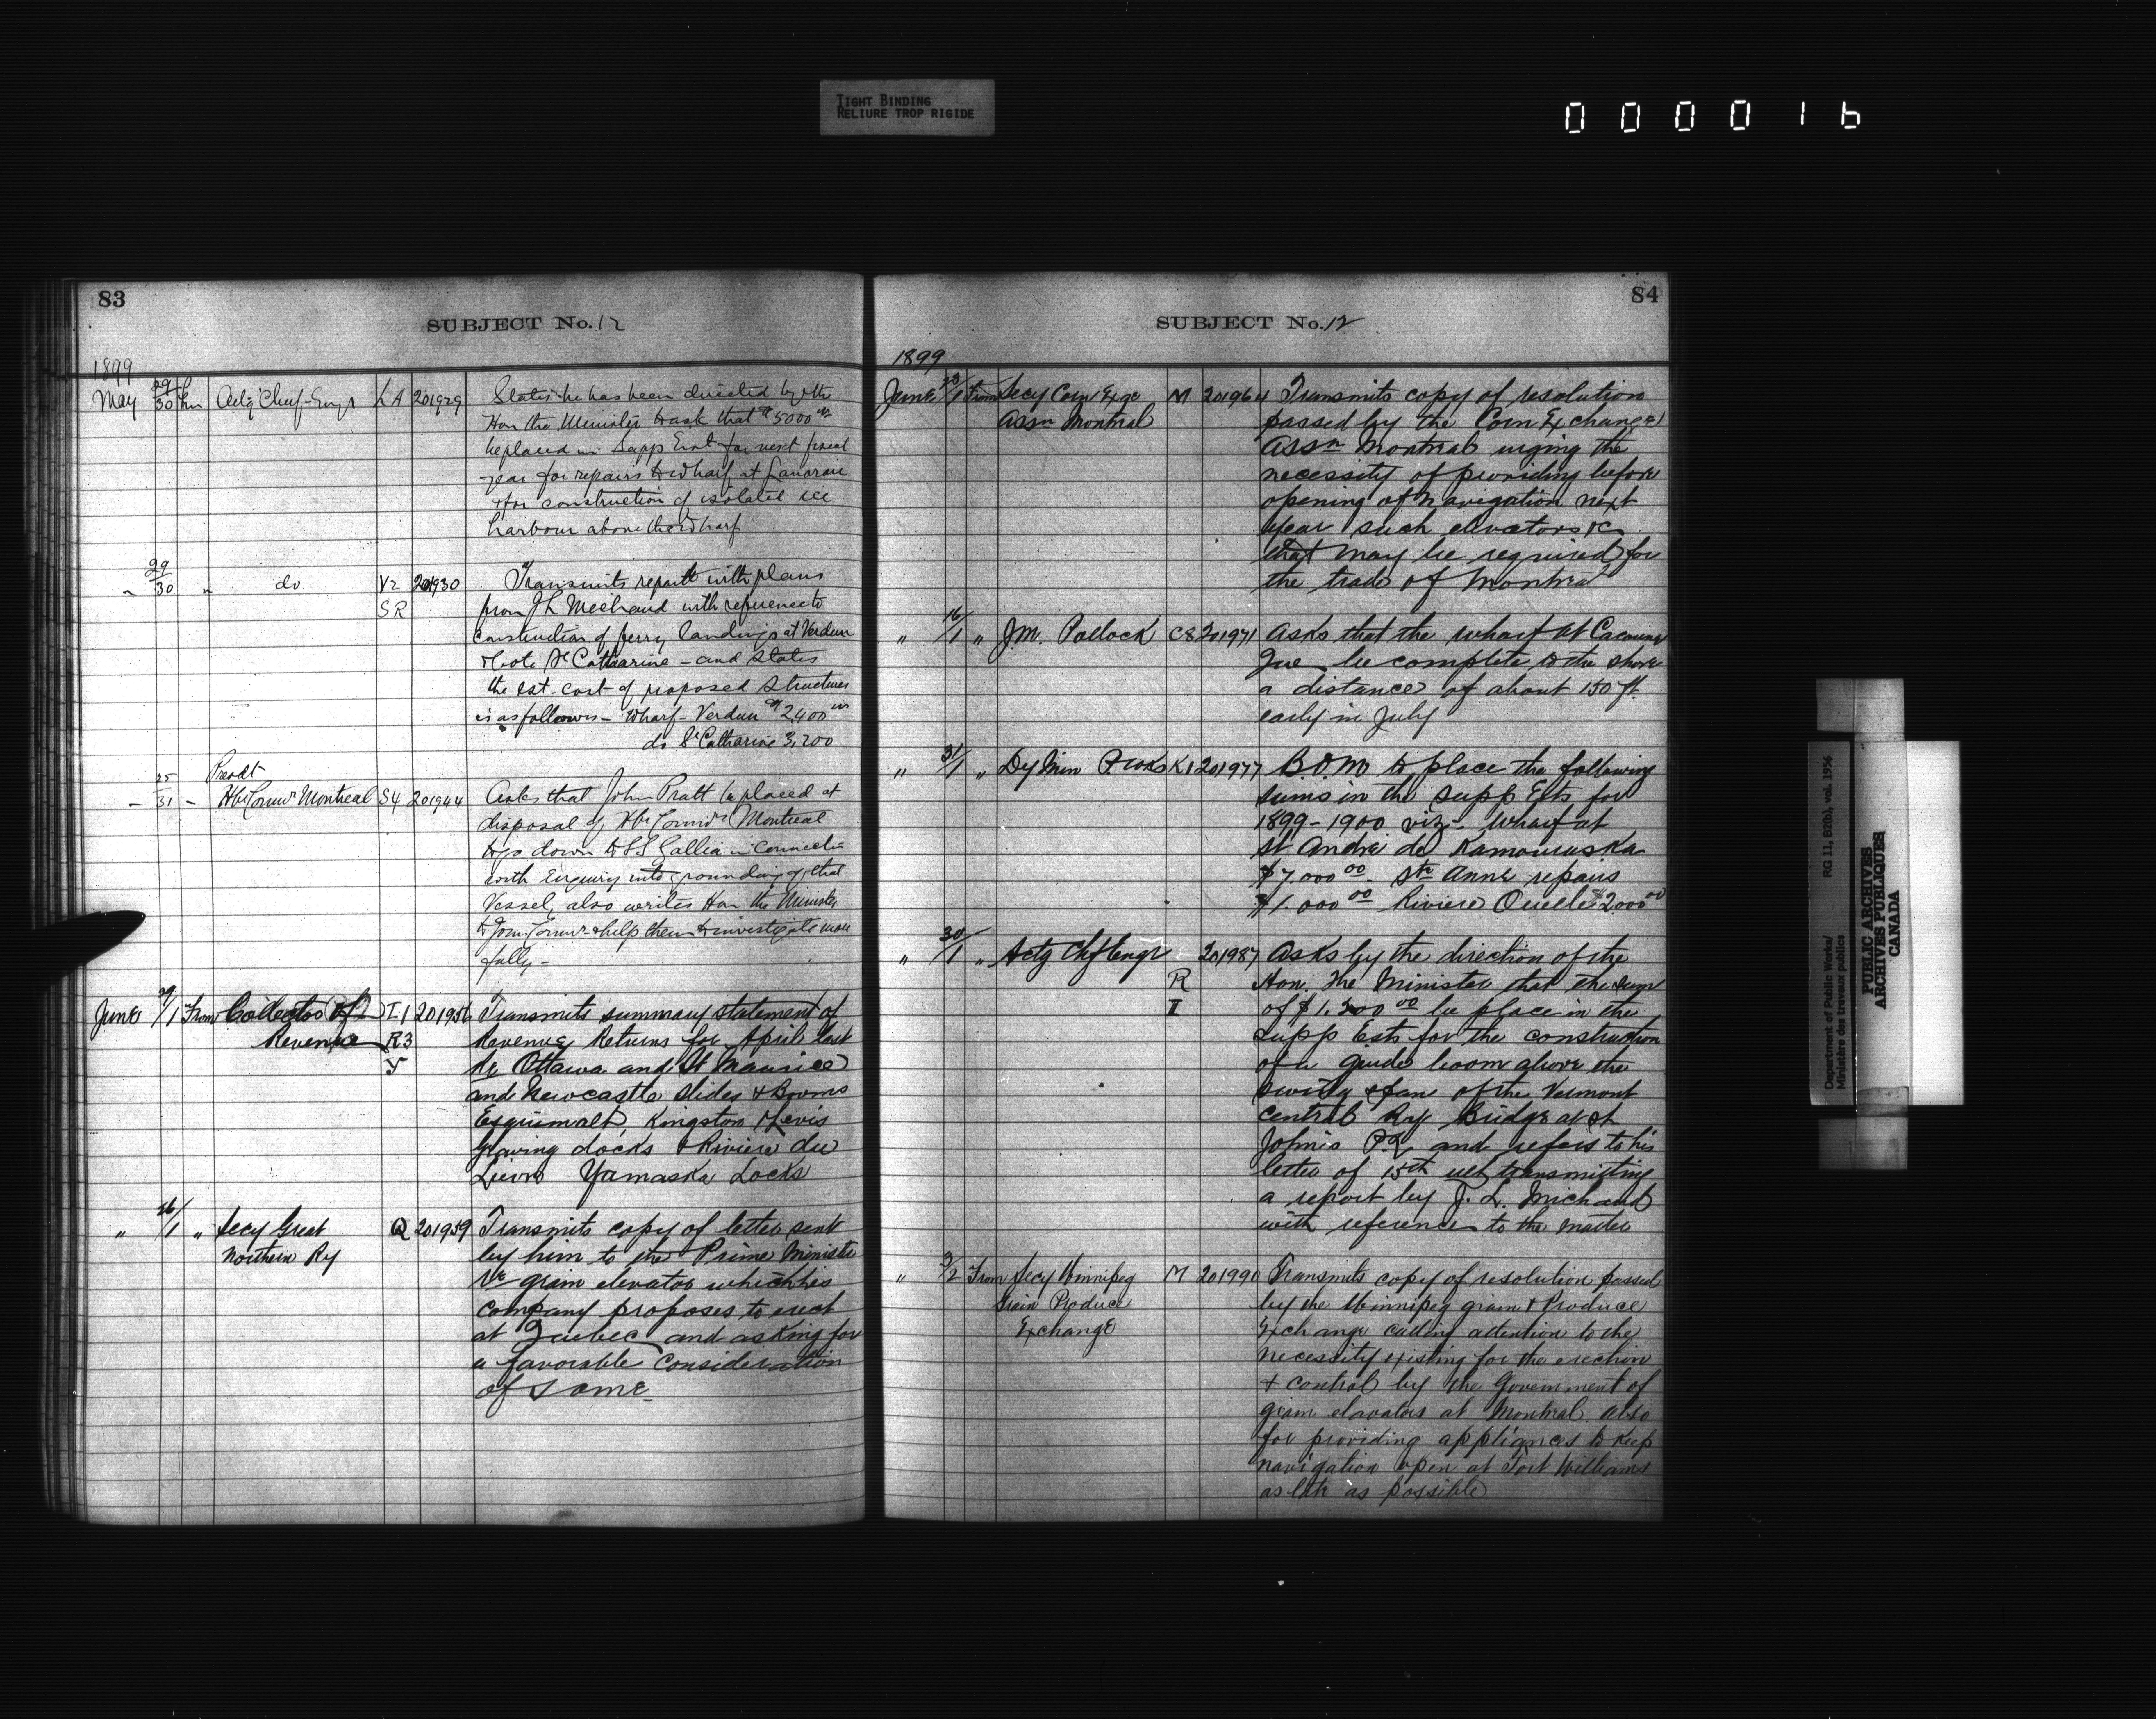 TIGHT BINDING
RELIURE TROP RIGIDE
000016
83
SUBJECT No. 12
1899
May 29/30 Frm Actg Chief Engr LA 201929 States he has been directed by the
Hon the Minister to ask that $5000.00
be placed in Supp Est for next fiscal
year for repairs to wharf at Lanoraie
& for construction of isolated ice
harbour above the wharf
" 29/30 " do V2 201930 Transmits report with plans
SR from J L Michaud with reference to
construction of ferry landings at Verdun
& Cote St Catharine - and states
the est. cost of proposed structures
is as follows - Wharf - Verdun $2400.00
do St Catharine 3,200
Presdt
" 25/31 " Hbr Comrs Montreal S4 201944 Asks that John Pratt be placed at
disposal of Hbr Comrs Montreal
to go down to SS Gallia in connectn
with Enquiry into grounding of that
Vessel, also writes Hon the Minister
to Join Comrs & help them to investigate more
fully -
June 29/1 From Collector of I1 201956 Transmits summary statement of
Revenue R3 Revenue Returns for April last
Y Re Ottawa and St Maurice
and Newcastle Slides & Booms
Esquimalt, Kingston & Levis
Graving docks & Riviere du
Lievre Yamaska Locks
" 26/1 " Secy Great Q 201959 Transmits copy of letter sent
Northern Ry by him to the Prime Minister
re grain elevator which his
company proposes to erect
at Quebec and asking for
a favorable consideration
of same
84
SUBJECT No. 12
1899
June 23/1 From Secy Corn Exge M 201964 Transmits copy of resolution
Assn Montreal passed by the Corn Exchange
Assn Montreal urging the
necessity of providing before
opening of navigation next
year such elevators &c
that may be required for
the trade of Montreal
" 16/1 " J.M. Pollock C8 201971 Asks that the wharf at Cacouna
Que be complete to the shore
a distance of about 150 ft.
early in July
" 31/1 " Dy Min P. Wks K1 201977 B.O.M to place the following
sums in the Supp Ests for
1899-1900 viz - Wharf at
St André de Kamouraska
$7.000 00 - Ste Anne repairs
$1.000 00 Riviere Ouelle $2000 00
" 30/1 " Actg Chf Engr 201987 Asks by the direction of the
R Hon. The Minister that the sum
I of $1.200 00 be place in the
Supp Ests for the construction
of a guide boom above the
swing span of the Vermont
Central Ry Bridge at St
John's P.Q and refers to his
letter of 15th ult transmitting
a report by J. L. Michaud
with reference to the matter
" 2/2 From Secy Winnipeg M 201990 Transmits copy of resolution passed
Grain Produce by the Winnipeg grain & Produce
Exchange Exchange calling attention to the
necessity existing for the erection
& control by the Government of
grain elavators at Montreal also
for providing appliances to keep
navigation open at Fort Williams
as late as possible
Department of Public Works/
Ministère des travaux publics
RG 11, B2(b), vol. 1956
PUBLIC ARCHIVES
ARCHIVES PUBLIQUES
CANADA